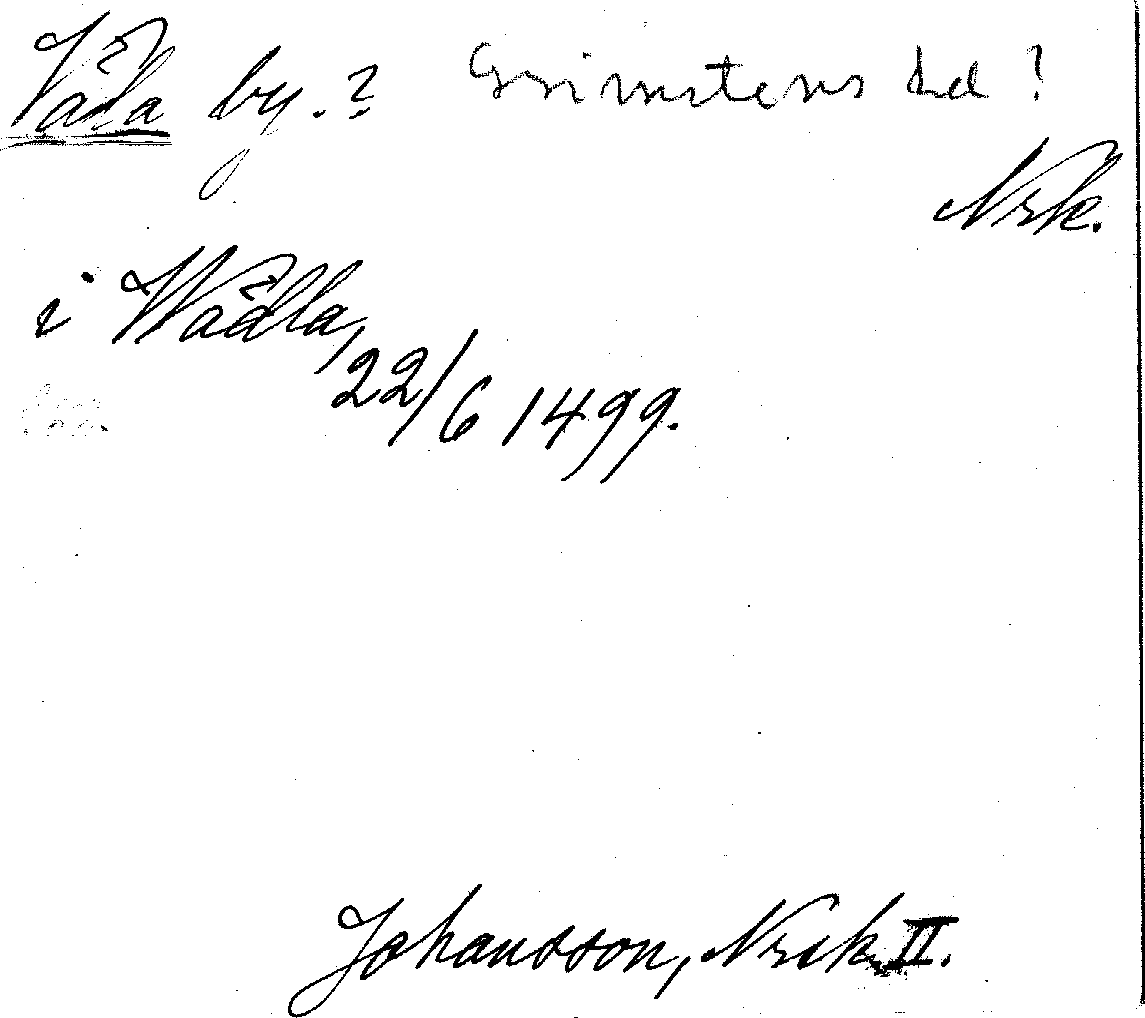 Våla by.? Grimstens hd?
Nrk.
i Wådla,
22/6 1499.
Johansson, Nrsk II.